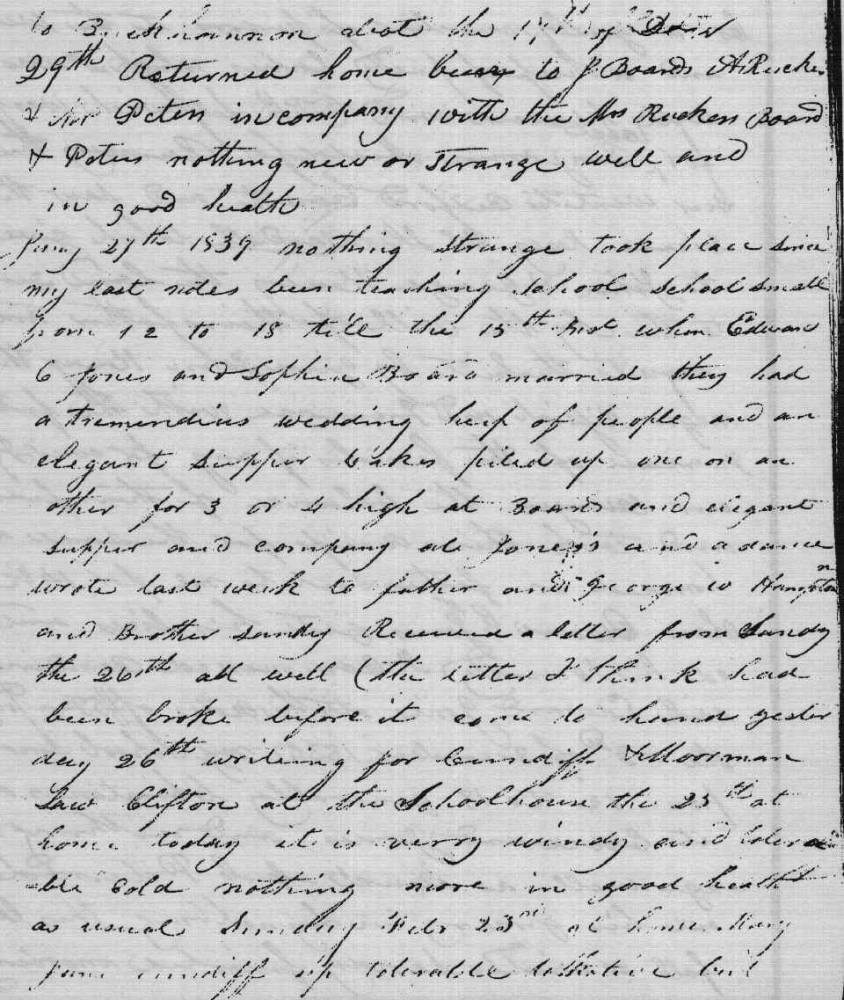 to Buckhannon about the 17th of
29th Returned home been to J Boards A Rucker
& Mr Peters in company with the Mrs Ruckers Board
& Peters nothing new or strange well and
in good health
Jany 27th 1839 nothing strange took place since
my last notes been teaching school school small
from 12 to 18 till the 15th Inst when Edward
C Jones and Sophia Board married they had
a tremendius wedding heap of people and an
elegant supper Cakes piled up one on an
other for 3 or 4 high at Boards and elegant
supper and company at Jones's and a dance
wrote last week to father and George W
and Brother Sandy Received a letter from Sandy
the 26th all well (the letter I think had
been broke before it come to hand yester
day 26th writing for Cundiff & Moorman
Saw Clifton at the Schoolhouse the 25th at
home today it is verry windy and tolera
ble Cold nothing more in good health
as usual Sunday Feb 23rd at home Mary
Jane cundiff up tolerable talkative but